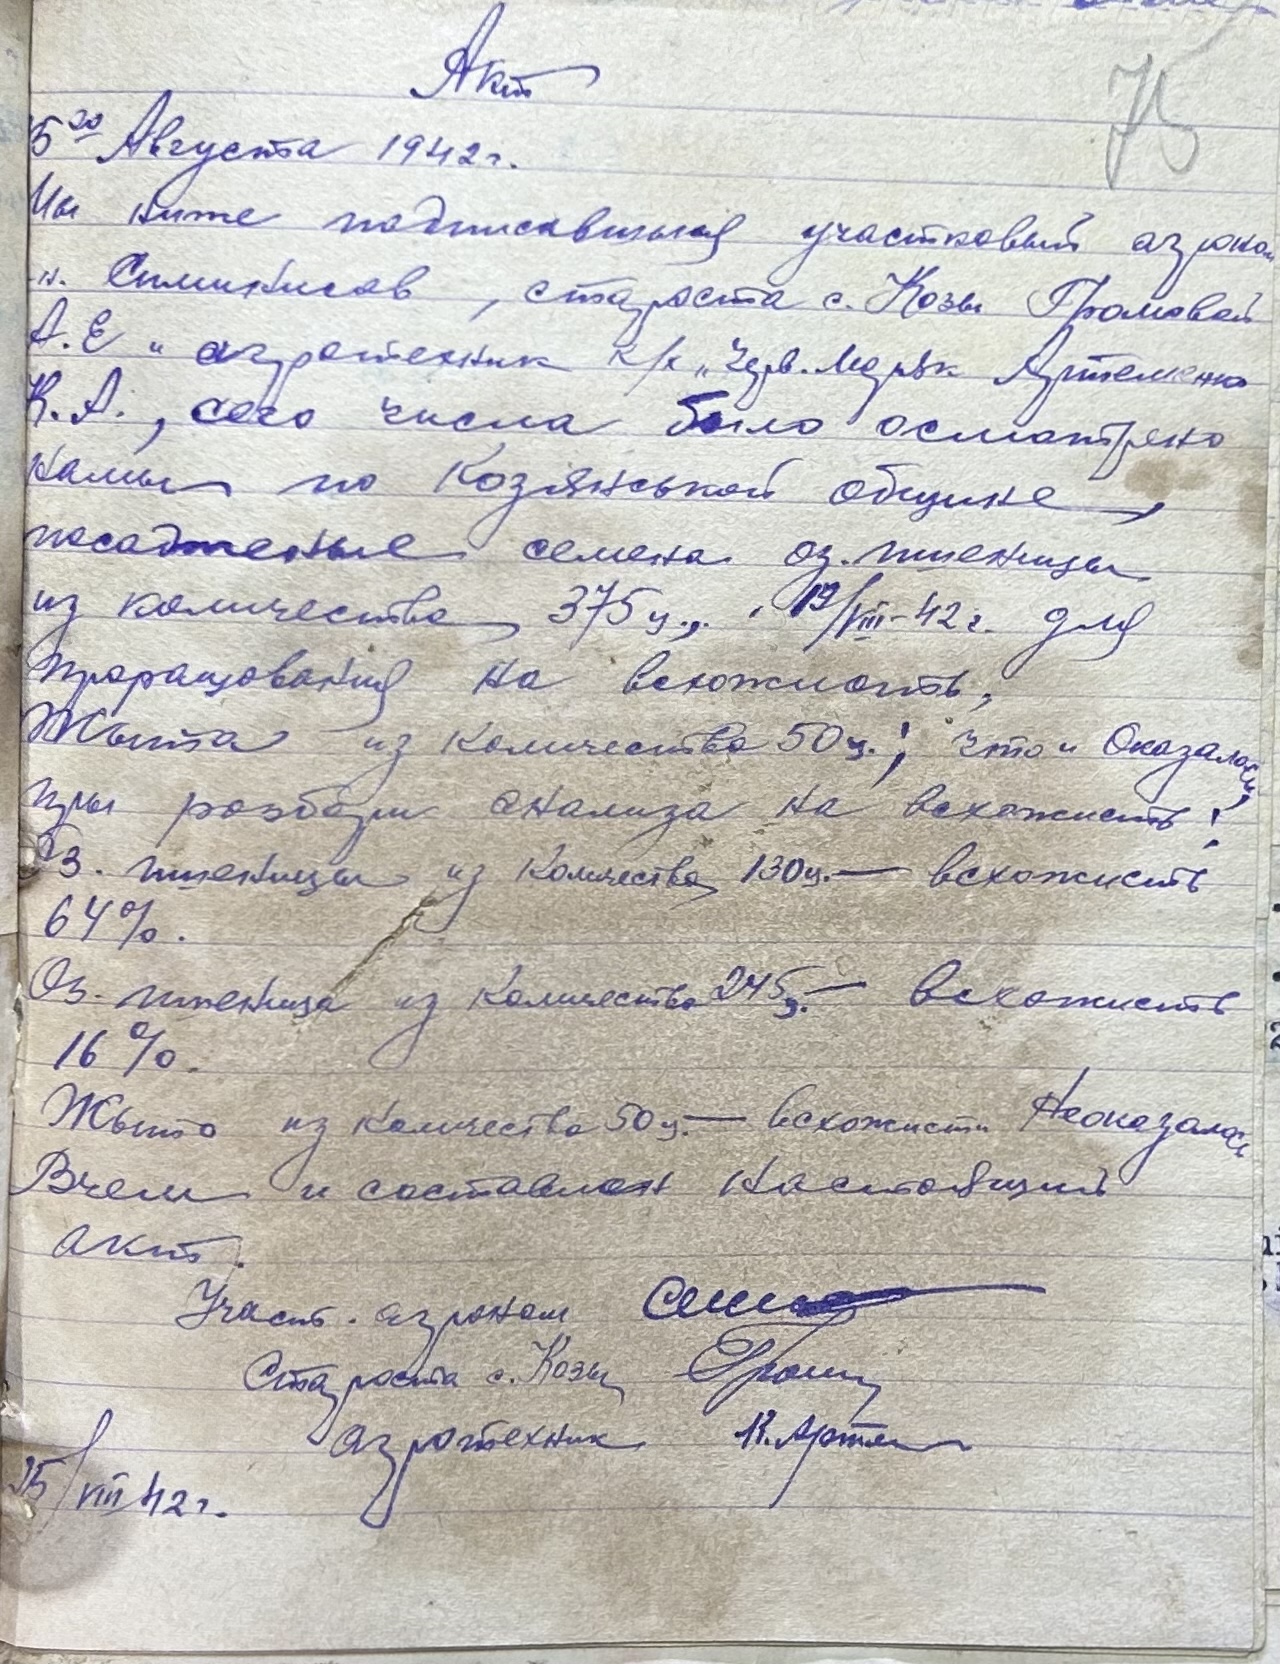 75
Акт
25го Августа 1942 г.
Мы ниже подписавшыяся участковый агроном
староста с. Козы Громовой
А.Е и агротехник к/х „Черв. Моряк Артеменко
К.А., сего числа было осмотрено
намы по Козянськой общине,
посадженные семена оз. пшеницы
из количества 375 ц., 19/VIII-42 г. для
проращования на всхожисть,
Жыта из количества 50 ц.; что и Оказалось,
пры розборы анализа на всхожисть:
Оз. пшеницы из количества 130 ц. — всхожисть
64%.
Оз. пшеница из количества 245 ц. — всхожисть
16%.
Жыто из количества 50 ц. — всхожисти Неоказалось
Вчем и составлен настоящий
акт.
Участ. агроном
Староста с. Козы Громов
агротехник К. Артем
25/VIII 42 г.